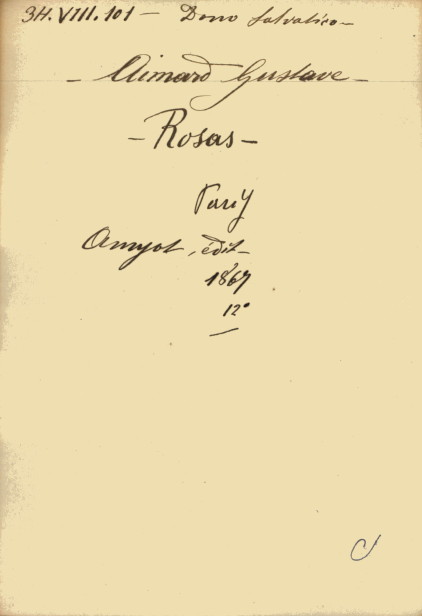 3H.VIII.101 — Dono Salvatico —
— Aimard Gustave —
— Rosas —
Paris
Amyot, édit —
1867
12°